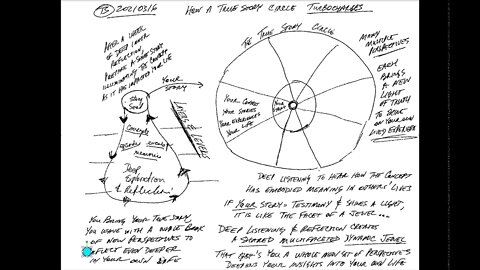 TS 2021/03/6
HOW A TRUE STORY CIRCLE TURBOCHARGES
AFTER A WEEK
OF DEEP INNER
REFLECTION,
PREPARE A SHORT STORY
ILLUMINATING THE CONCEPT
AS IT HAS IMPACTED YOUR LIFE
YOUR
STORY
STORY
SEED
LAYERS & LEVELS
CONCEPT
MEMORIES
DEEP
EXPLORATION
& REFLECTION
YOU BRING YOUR TRUE STORY,
YOU LEAVE WITH A WHOLE BOOK
OF NEW PERSPECTIVES TO
REFLECT EVEN DEEPER
IN YOUR OWN LIFE
THE TRUE STORY CIRCLE
YOUR CONCEPT
YOUR STORIES
YOUR EXPERIENCES
YOUR LIFE
YOUR
STORY
MANY
MULTIPLE
PERSPECTIVES
EACH
BRINGS
A NEW
LIGHT OF
TRUTH
TO SHINE
ON YOUR OWN
LIVED EXPERIENCE
DEEP LISTENING TO HEAR HOW THE CONCEPT
HAS EMBODIED MEANING IN OTHERS' LIVES
IF YOUR STORY = TESTIMONY & SHINES A LIGHT,
IT IS LIKE THE FACET OF A JEWEL...
DEEP LISTENING & REFLECTION CREATES
A SHARED MULTIFACETED DYNAMIC JEWEL
THAT GIVES YOU A WHOLE NEW SET OF PERSPECTIVES
INSIGHTS INTO YOUR OWN LIFE